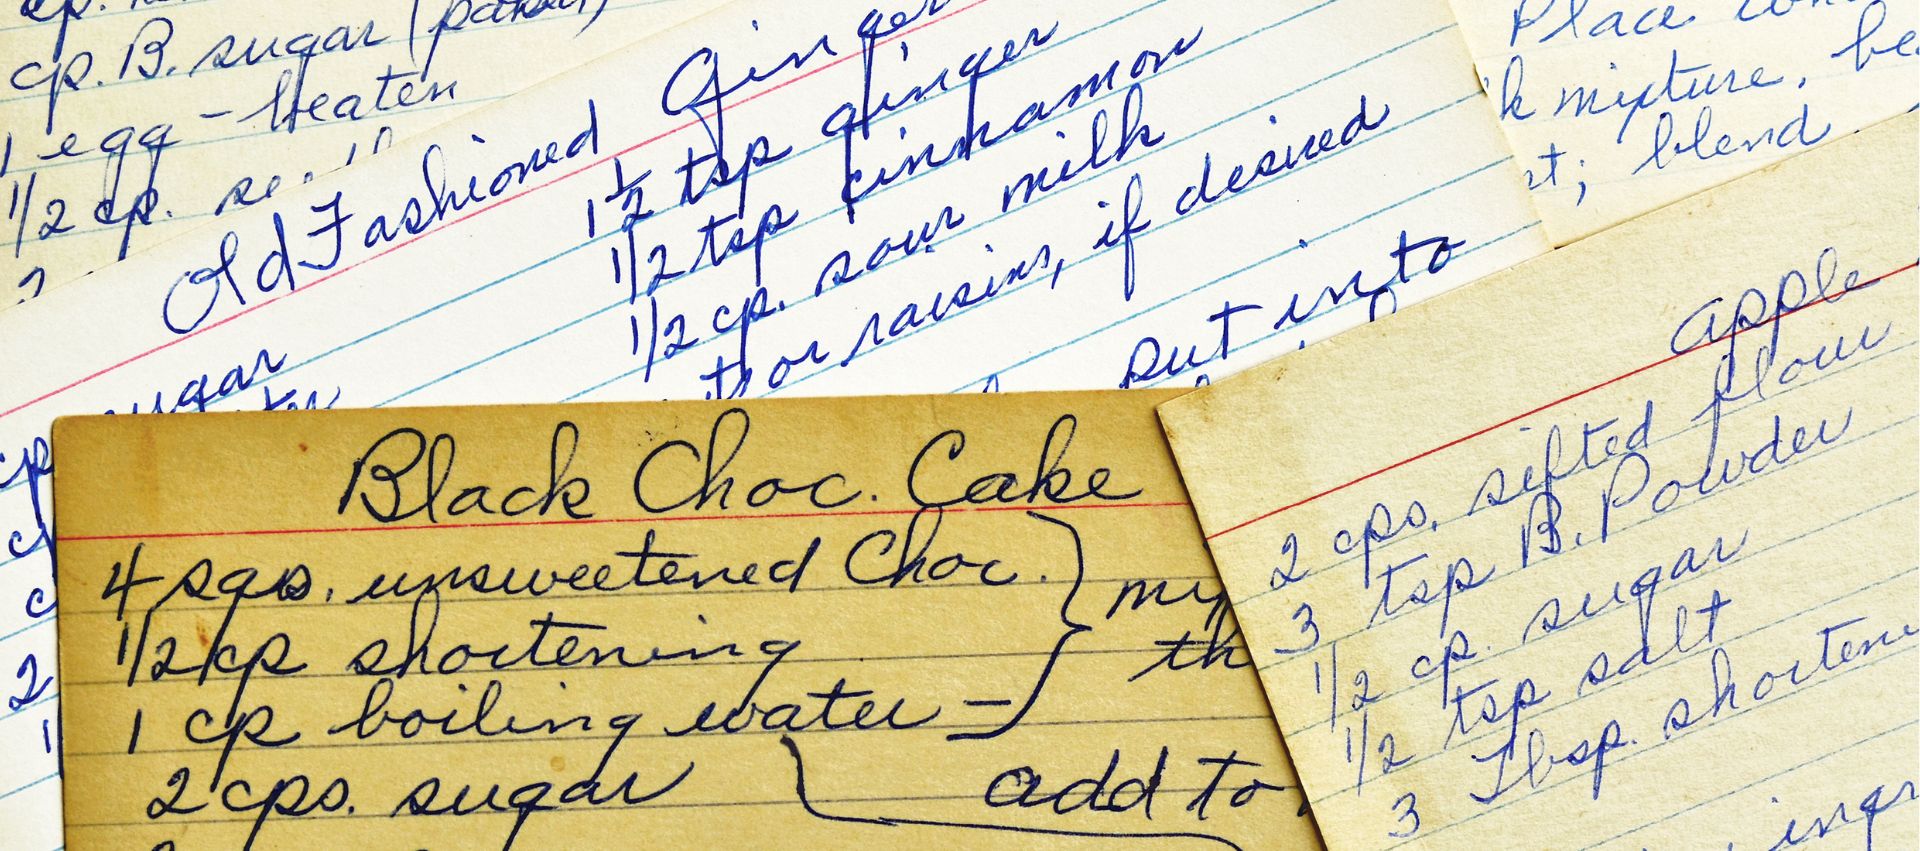 cp. B. sugar
1 egg - beaten
1/2 cp.
Old Fashioned Ginger
1 1/2 tsp ginger
1/2 tsp cinnamon
1/2 cp. sour milk
or raisins, if desired
sugar
put into
Place
mixture, be
; blend
Black Choc. Cake
4 sqs. unsweetened Choc.
1/2 cp shortening
1 cp boiling water -
2 cps. sugar
add to
Apple
2 cps. sifted flour
3 tsp B. Powder
1/2 cp. sugar
1/2 tsp salt
3 Tbsp. shorteni